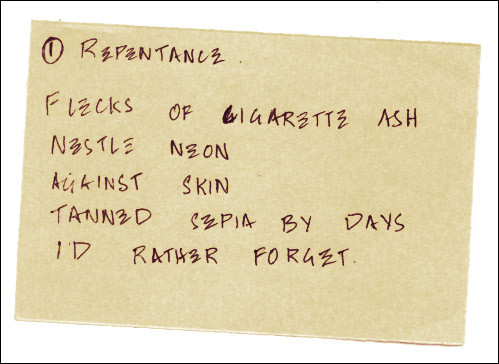 ① REPENTANCE.
FLECKS OF CIGARETTE ASH
NESTLE NEON
AGAINST SKIN
TANNED SEPIA BY DAYS
I'D RATHER FORGET.